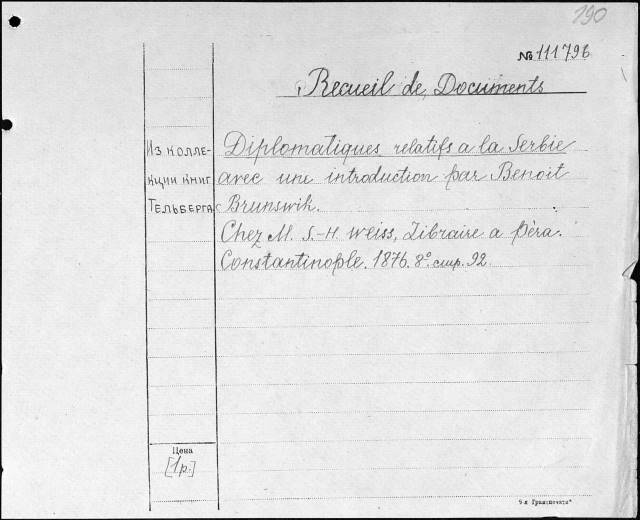 190
№ 111796
Recueil de Documents
Из колле-
кции книг
Тельберга
Diplomatiques relatifs a la Serbie
avec une introduction par Benoit
Brunswik.
Chez M. S.-H. Weiss, Libraire a Péra.
Constantinople. 1876. 8° стр. 92
Цена
[1 р.]
"